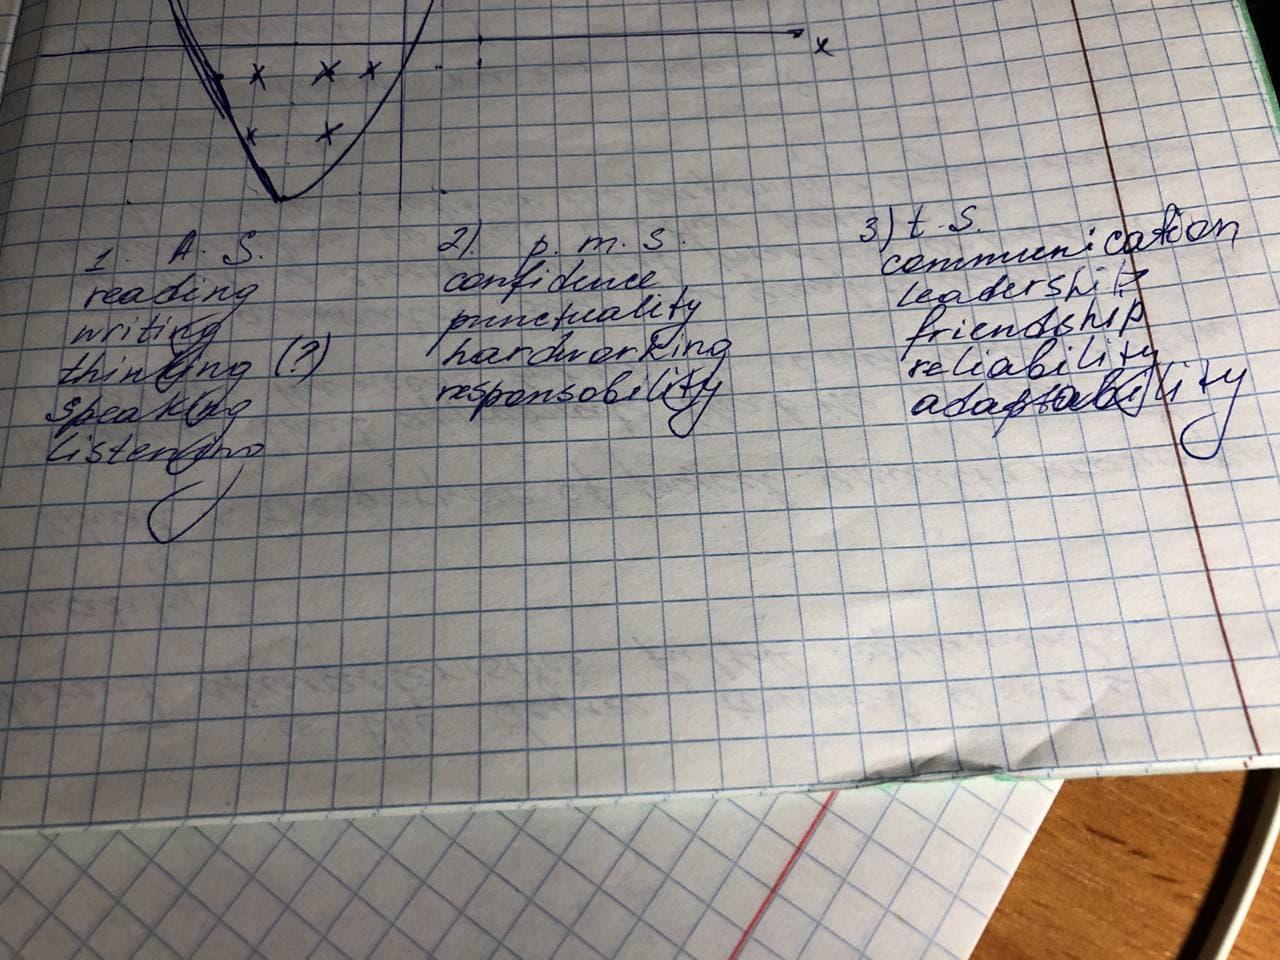 x
1. A. S.
reading
writing
thinking (?)
speaking
listening
2). p. m. s.
confidence
punctuality
hardworking
responsobility
3) t. S.
communication
leadership
friendship
reliability
adaptability